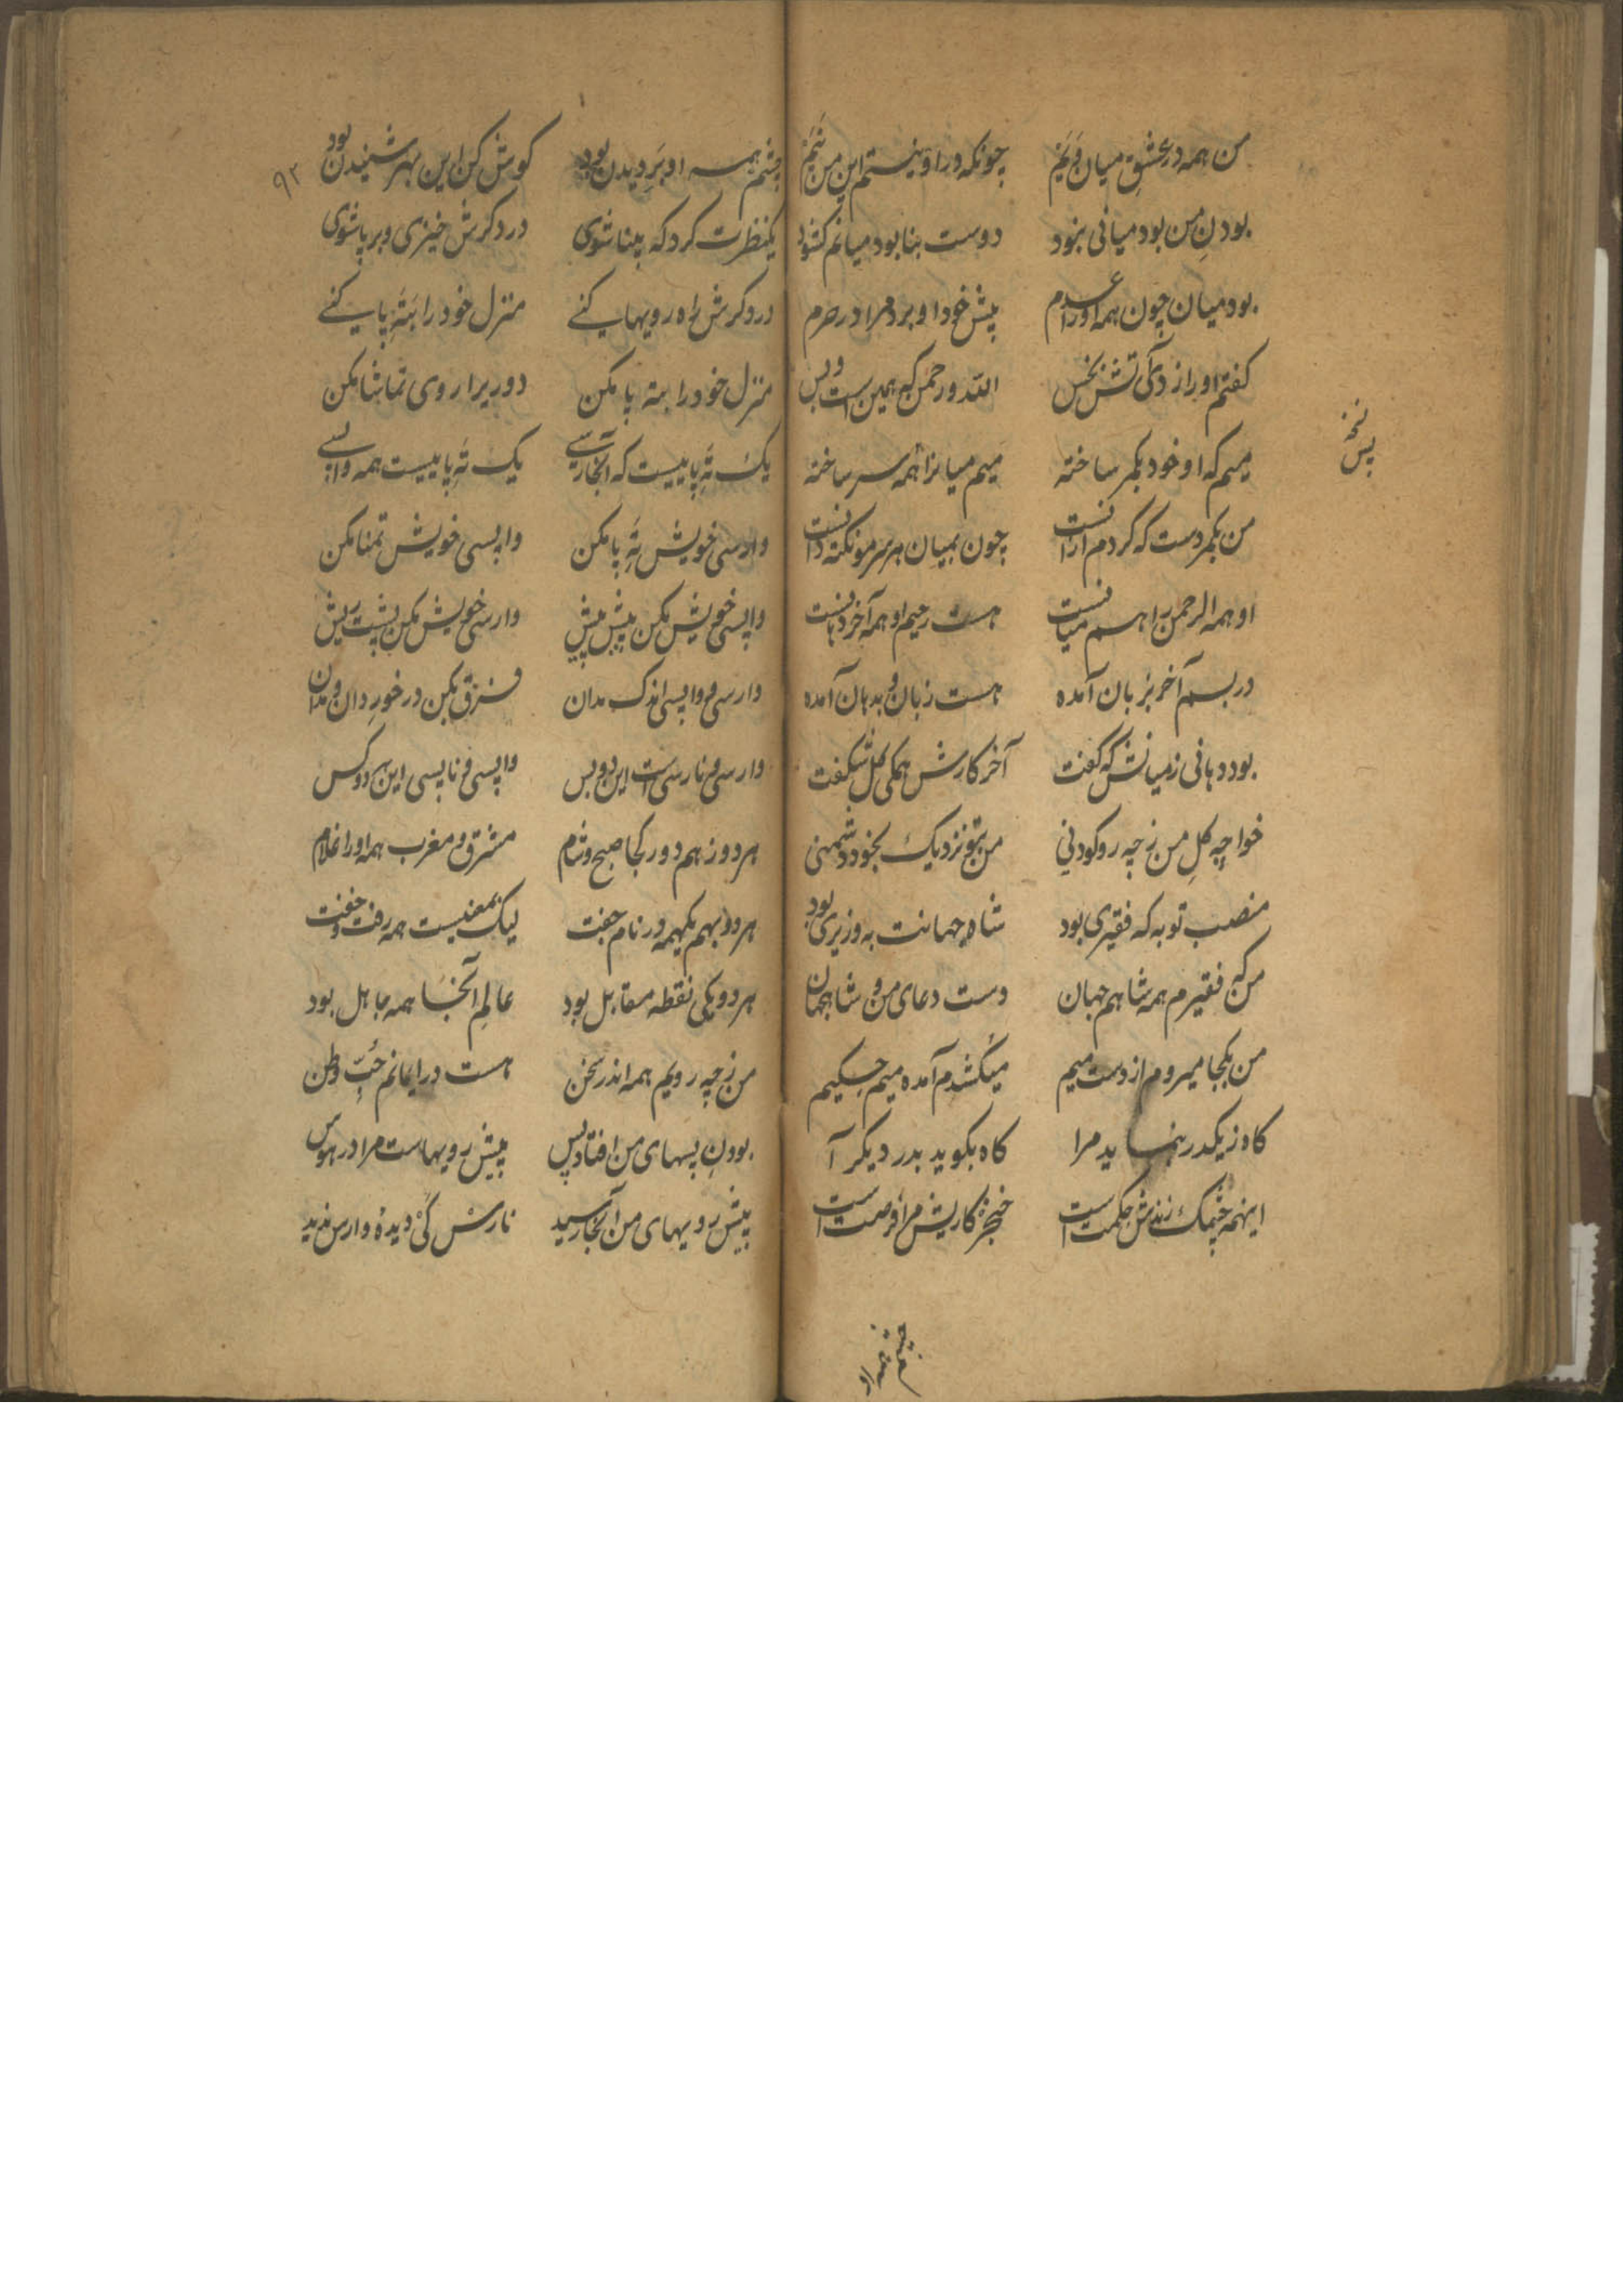 من همه در عشق میان و نیم چونکه ورا و نیستم این من نیم
بودن من بود میانی نبود دوست بنا بود میانم کشود
بود میان چون همه او را عدم پیش خود او برد مرا در حرم
کفتم او را از دکی تش بخس الله و رحمن که همین است و بس
نسخه پس
میم که او خود بکمر ساخته میم میانرا همه سر ساخته
من بکمر دست که کردم ازانست چون بمیان هر سر مو نکته دانست
او همه الرحمن را هم میانست هست رحیم او همه آخر دهانست
در بسم آخر بزبان آمده هست زبان و بدهان آمده
بود دهانی زمیانش که کفت آخر کارش همکی کل شکفت
خواجه کل من ز چه رو کودنی من بتو نزدیک بخود دشمنی
منصب تو به که فقیری بود شاه جهانت به وزیری بود
من که فقیرم همه شاهم جهان دست دعای من و شاهجهان
من بکجا میروم از دست میم میکشدم آمده میم حکیم
کاه ز یکدر بنماید مرا کاه بکوید بدر دیکر آ
اینهمه چشمک زدنش حکمت است خنجر کاریش مرا فرصت است
چشم همه او
۹۲
چشم همه او بر دیدن بود کوش کن این بهر شنیدن بود
یکنظرت کرد که بینا شوی در دکرش خیزی و بر پا شوی
در دکرش راه رویها کنی منزل خود را بته پا کنی
منزل خود را بته پا مکن دور برا روی تماشا مکن
یک ته پا بیست که آنجا رسی یک ته پا بیست همه واپسی
وارسی خویش ته پا مکن واپسی خویش تمنا مکن
واپسی خویش مکن پیش پیش وارسی خویش مکن پشت ریش
وارسی و واپسی اندک مدان فرق بکن در خور دان و مدان
وارسی و نارسی است این دو بس واپسی و ناپسی این هر دو کس
هر دو ز هم دور کجا صبح و شام مشرق و مغرب همه او را غلام
هر دو بهم یکهمه در نام جفت لیک بمعنیست همه رفت و خفت
هر دو یکی نقطه مقابل بود عالم آنجا همه جاهل بود
من ز چه رویم همه اندر سخن هست در ایمانم حب وطن
بودن پسهای من افتاد پس پیش رویهاست مرا در هوس
پیش رویهای من آنجا رسید نارس کی دیده وارس ندید